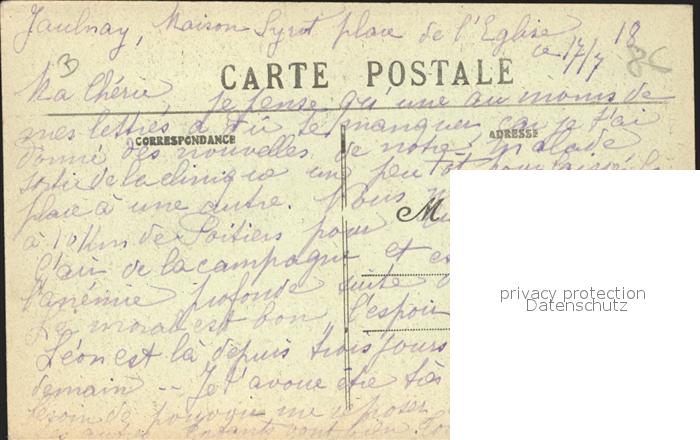 Jaulnay, Maison Syrot place de l'Eglise
ce 17/7 18
3
CARTE POSTALE
Ma Chérie, je pense qu'une au moins de
mes lettres a dû te manquer car je t'ai
CORRESPONDANCE
ADRESSE
donné des nouvelles de notre malade
sortie de la clinique un peu tôt pour laisser
place à une autre. Nous
M
à 10 Km de Poitiers pour
l'air de la campagne et
l'anémie profonde suite
Le moral est bon l'espoir
Léon est là depuis trois jours
demain -- Je t'avoue être très
besoin de pouvoir me reposer
autres enfants vont bien
privacy protection
Datenschutz